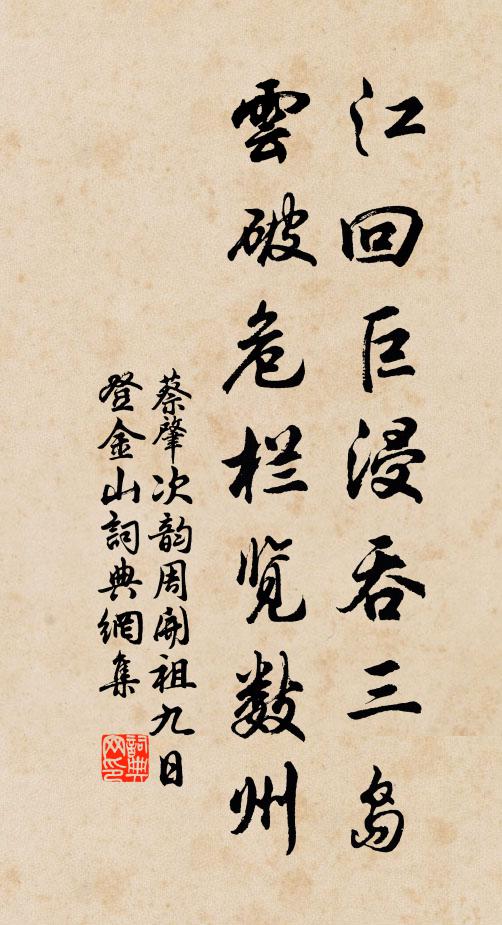 江回巨浸吞三岛
雲破危栏览数州
蔡肇次韵周開祖九日
登金山詞典網集
詞典
网印